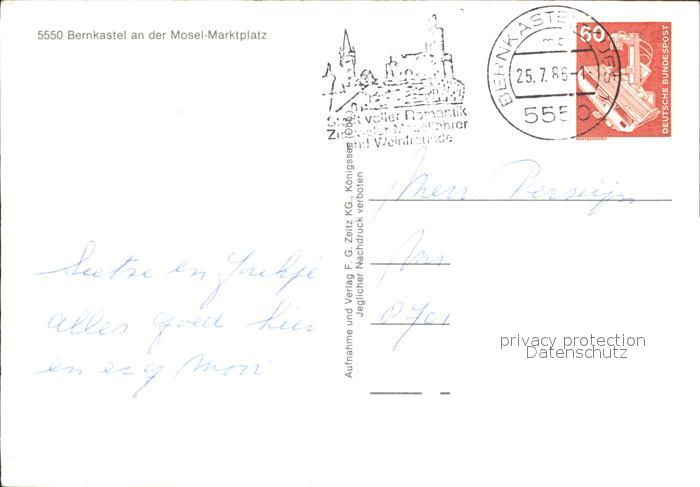 5550 Bernkastel an der Mosel-Marktplatz
Stadt voller Romantik
Ziel der
und Weinfreunde
BERNKASTEL
25.7.86-1
5550
60
DEUTSCHE BUNDESPOST
Aufnahme und Verlag F. G. Zeitz KG., Königssee
Jeglicher Nachdruck verboten
Sietse en
alles goed hier
en erg mooi
8701
privacy protection
Datenschutz